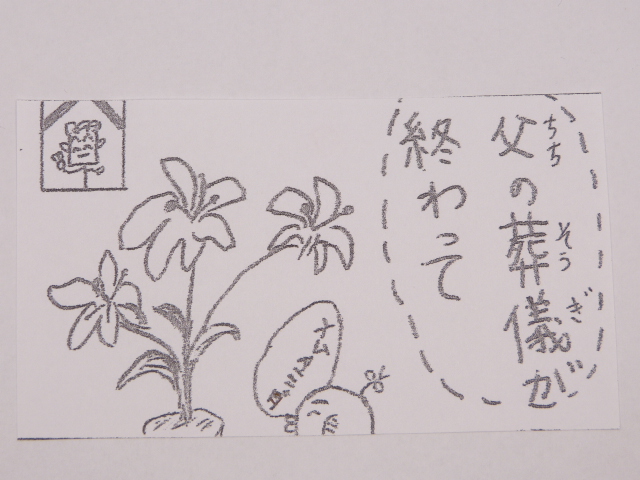 父の葬儀が
ちち
そうぎ
終わって
ナムアミ